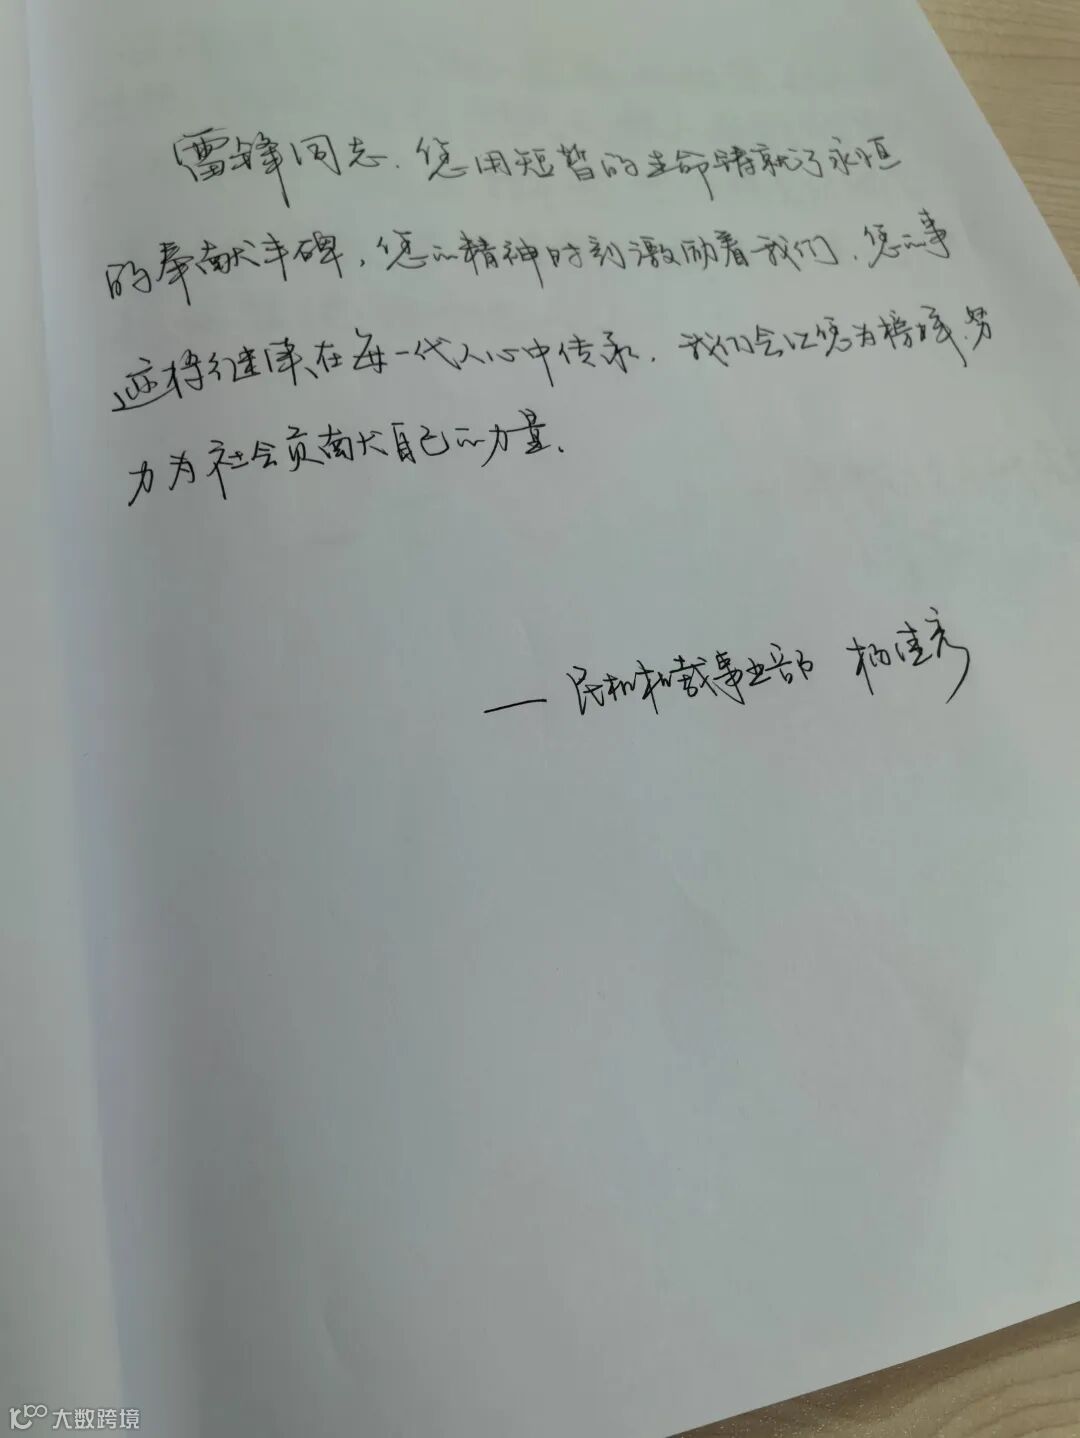 雷锋同志、您用短暂的生命铸就了永恒
的奉献丰碑，您的精神时刻激励着我们，您的事
迹将继续在每一代人心中传承，我们会以您为榜样，努
力为社会贡献自己的力量。
— 民机机载事业部 杨佳
大数跨境